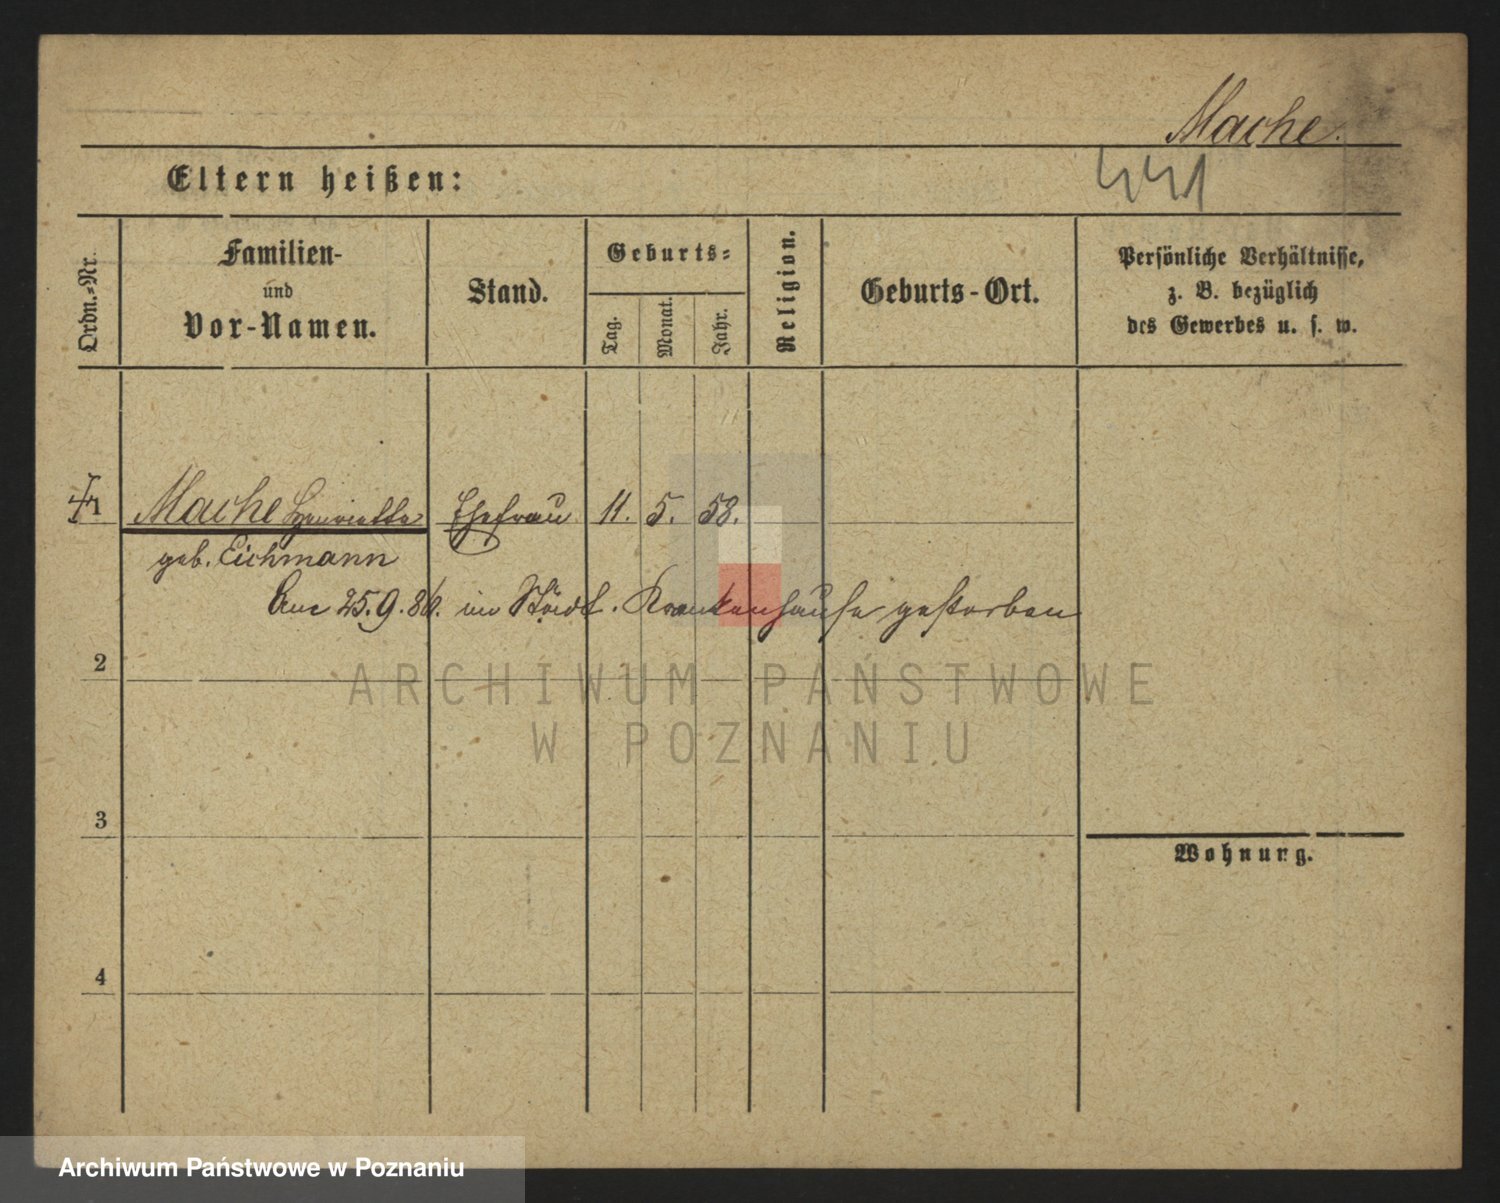 Mache.
Eltern heißen:
441
Ordn.-Nr.
Familien-
und
Vor-Namen.
Stand.
Geburts-
Tag.
Monat.
Jahr.
Religion.
Geburts-Ort.
Persönliche Verhältnisse,
z. B. bezüglich
des Gewerbes u. s. w.
1 Mache Henriette Ehefrau 11. 5. 58.
geb. Eichmann
Am 25.9.86. im Städt. Krankenhause gestorben
2
ARCHIWUM PAŃSTWOWE
W POZNANIU
3
Wohnung.
4
Archiwum Państwowe w Poznaniu